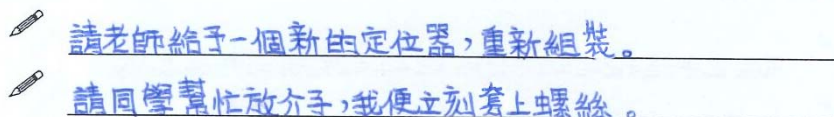 請老師給予一個新的定位器，重新組裝。
請同學幫忙放介子，我便立刻套上螺絲。